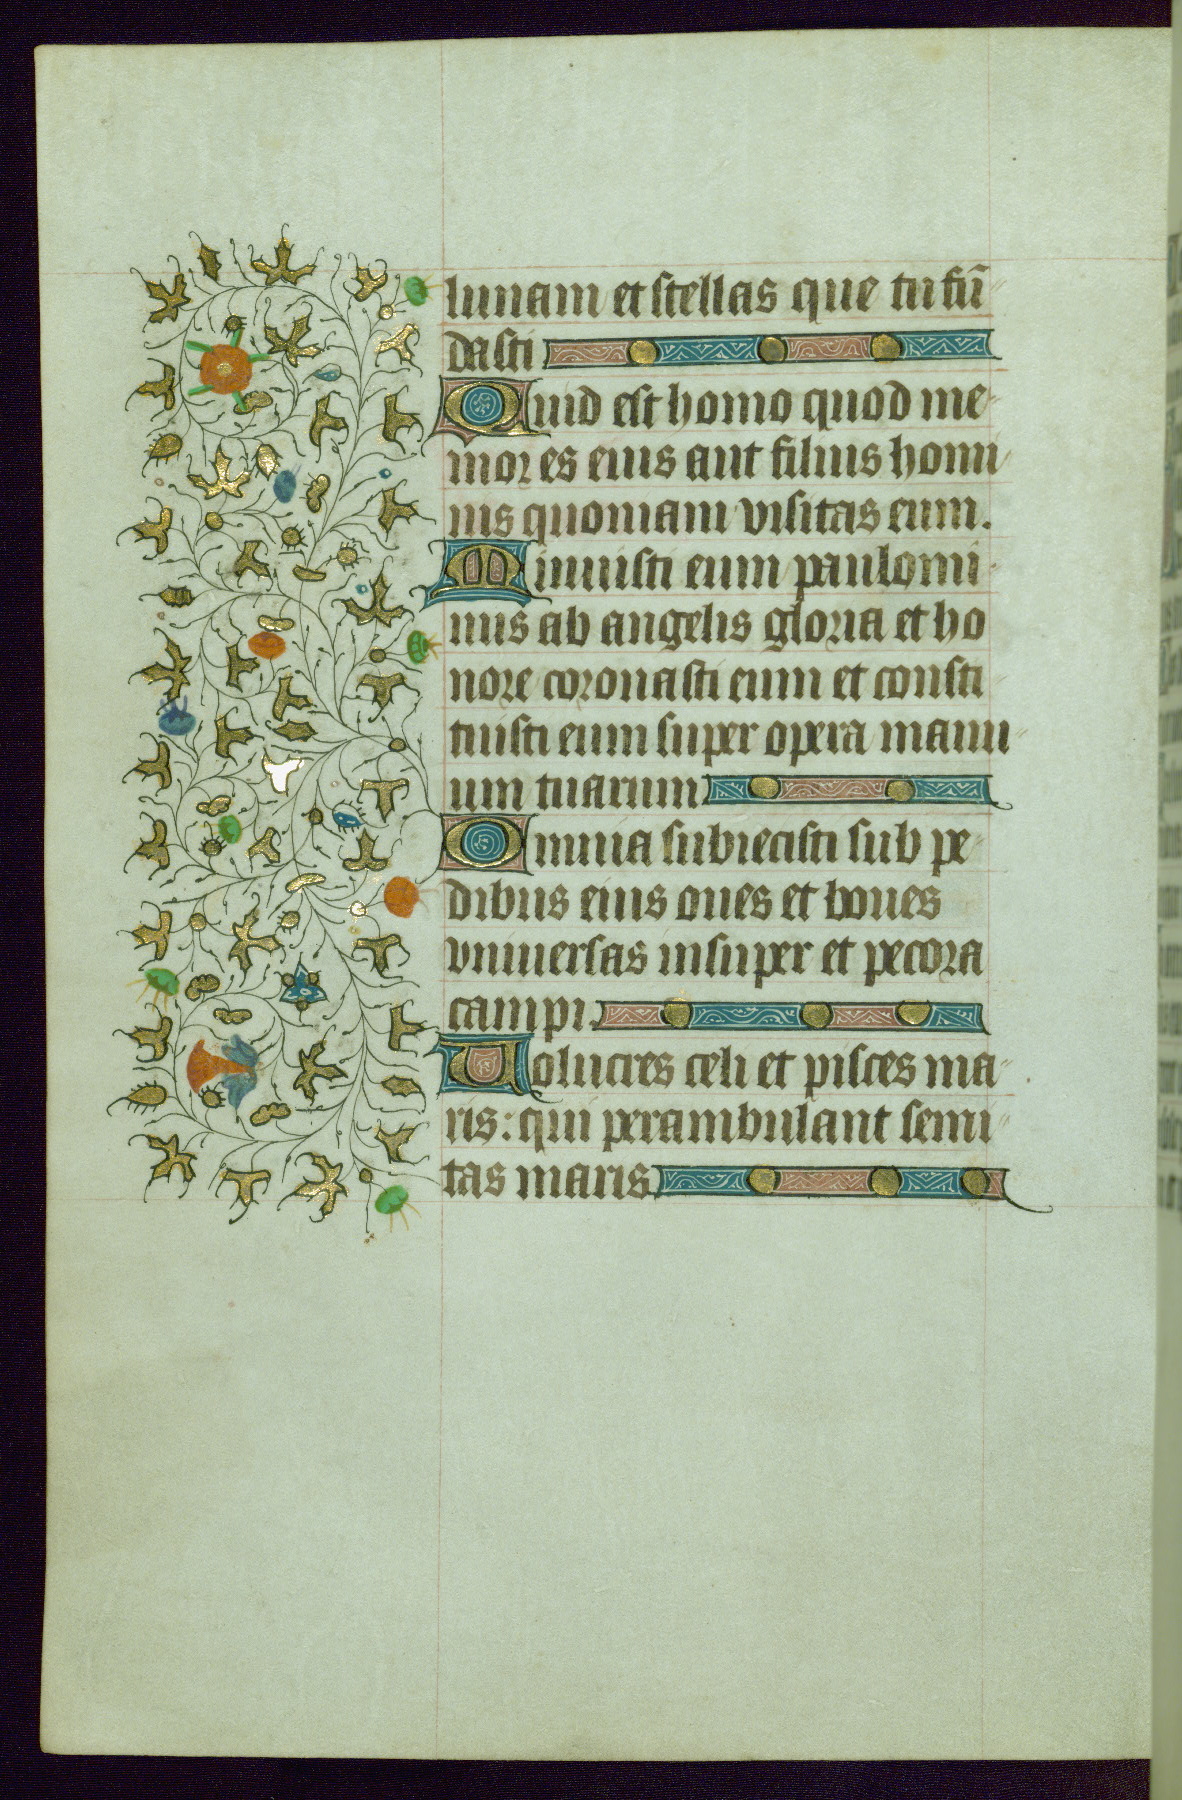 lunam et stellas que tu fū
dasti
Quid est homo quod me-
mor es eius aut filius homi-
nis quoniam visitas eum.
Minuisti eum paulomi-
nus ab angelis gloria et ho
nore coronasti eum et consti
tuisti eum super opera manu
um tuarum
Omnia subiecisti sub pe-
dibus eius oues et boues
vniuersas insuper et pecora
campi.
Uolucres celi et pisces ma-
ris: qui perambulant semi-
tas maris